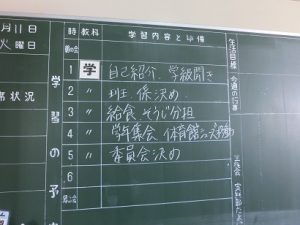 月11日
火曜日
席状況
学習の予
時 教科 学習内容と準備
朝の会
1 学 自己紹介、学級開き
2 〃 班、係決め
3 〃 給食そうじ分担
4 〃 学年集会、体育館シューズ
5 〃 委員会決め
6
生活目標
今週の行事